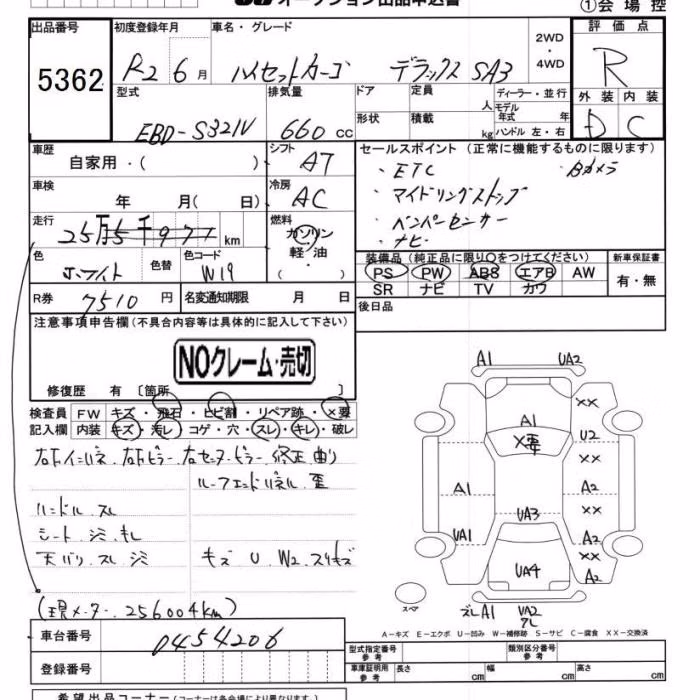 オークション出品申込書
①会場控
出品番号 初度登録年月 車名・グレード 2WD・4WD 評価点
5362
R2 6月 ハイゼットカーゴ デラックス SA3
R
型式 排気量 ドア 定員 人 ディーラー・並行 外装 内装
EBD-S321V 660 cc 形状 積載 kg モデル年式 年 ハンドル 左・右 D C
車歴 自家用・( ) シフト AT セールスポイント (正常に機能するものに限ります)
・ETC ・Bカメラ
車検 年 月( 日) 冷房 AC ・アイドリングストップ
走行 25万5千977 km 燃料 ガソリン・軽油・( )
・ナビ
色 ホワイト 色替 色コード W19
装備品 (純正品に限り○をつけてください) 新車保証書
PS PW ABS エアB AW 有・無
SR ナビ TV カワ
R券 7510 円 名変通知期限 月 日 後日品
注意事項申告欄 (不具合内容等は具体的に記入して下さい)
NOクレーム・売切
修復歴 有 [箇所 ]
検査員 FW キズ・飛石・ヒビ割・リペア跡・×要
記入欄 内装 キズ・汚レ・コゲ・穴・スレ・キレ・破レ
右F インパネ、右Fピラー、右センターピラー 修正 曲り
ルーフエンドパネル 歪
ハンドル スレ
シート シミ キレ
天バリ スレ シミ キズ U W2 スリキズ
(現メーター 256004km)
A1 UA2
XX
A1
X要 U2
XX
A1 A2
UA3 XX
UA1 A2
XX
UA4 A2
スペア ズレA1 UA2
ワレ
A-キズ E-エクボ U-凹み W-補修跡 S-サビ C-腐食 XX-交換済
車台番号 0454206
型式指定番号 参考 類別区分番号 参考
登録番号 車庫証明用 参考 長さ cm 幅 cm 高さ cm
希望出品コーナー (コーナーは各会場により異なります。)